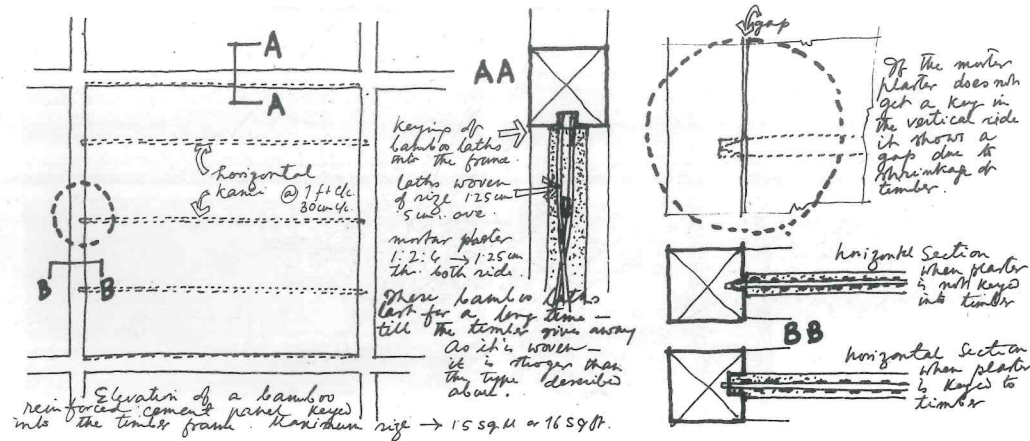 A
A
horizontal
kamci @ 1 ft c/c
30 cm c/c
B
B
Elevation of a bamboo
reinforced cement panel keyed
into the timber frame. Maximum size → 1.5 sq M or 16 sq ft.
AA
Keying of
bamboo laths
into the frame.
laths woven
of size 1.25 cm
5 cm ave
mortar plaster
1:2:4 → 1.25 cm
thk both side.
These bamboo laths
last for a long time –
till the timber gives away
As it is woven –
it is stroger than
the type described
above.
gap
If the morter
plaster does not
get a key in
the vertical side
it shows a
gap due to
shrinkage of
timber.
horizontal Section
when plaster
is not keyed
into timber
BB
horizontal Section
when plaster
is keyed to
timber